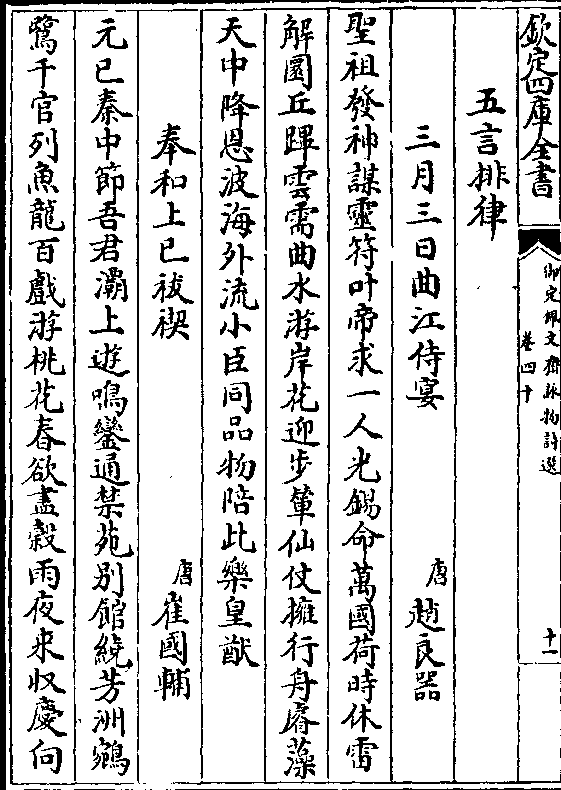 欽定四庫全書
御定佩文齋詠物詩選
卷四十
十一
五言排律
三月三日曲江侍宴 唐 趙良器
聖祖發神謀靈符叶帝求一人光錫命萬國荷時休雷
解圜丘蹕雲需曲水游岸花迎步輦仙仗擁行舟睿藻
天中降恩波海外流小臣同品物陪此樂皇猷
奉和上巳祓禊 唐 崔國輔
元巳秦中節吾君灞上遊鳴鑾通禁苑别館繞芳洲鵷
鷺千官列魚龍百戲游桃花春欲盡穀雨夜来収慶向